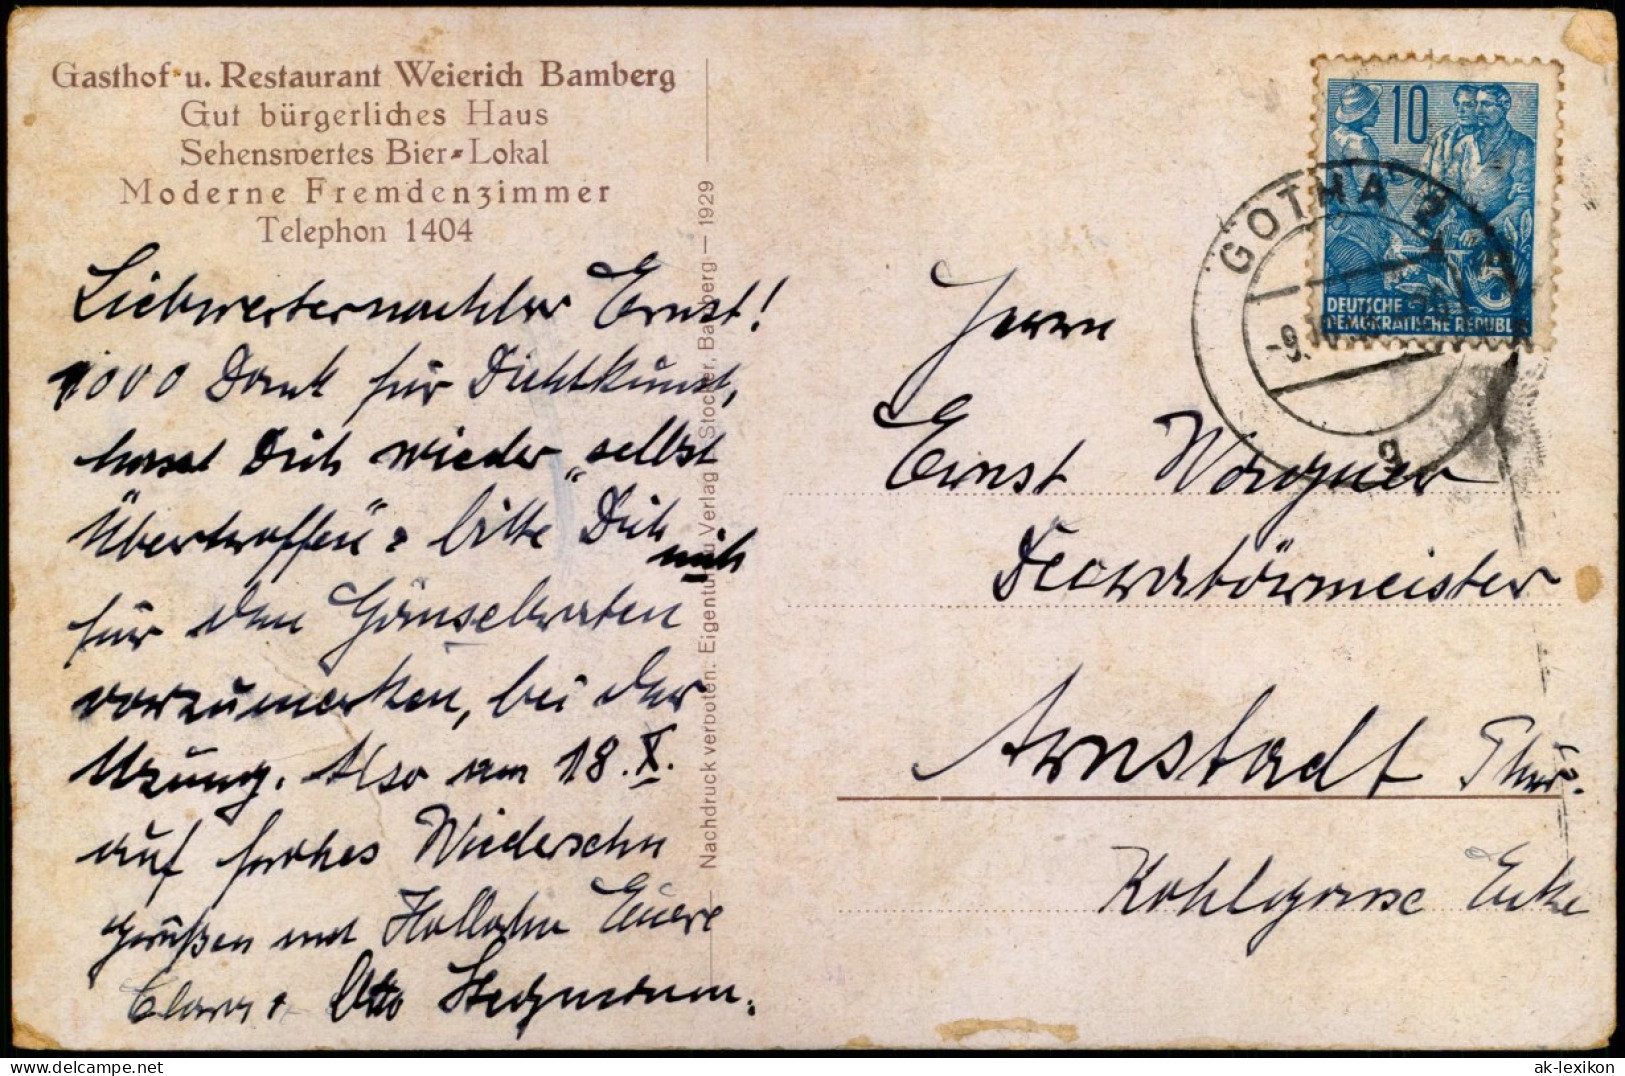 Gasthof u. Restaurant Weierich Bamberg
Gut bürgerliches Haus
Sehenswertes Bier-Lokal
Moderne Fremdenzimmer
Telephon 1404
Liebwerternachler Ernst!
1000 Dank für Dichtkunst,
hast Dich wieder „selbst
Übertroffen" bitte Dich
mich
für den Gänsebraten
vorzumerken, bei der
Atzung. Also am 18. X.
auf frohes Wiedersehn
grüßen mit Hallohn Euere
Clara + Otto Stegmann.
Nachdruck verboten. Eigentum u Verlag Stocker, Bamberg — 1929
10
DEUTSCHE
DEMOKRATISCHE REPUBLIK
GOTHA 2
-9.
g
Herrn
Ernst Wagner
Decoratörmeister
Arnstadt Thür.
Kohlgasse Ecke
ak-lexikon